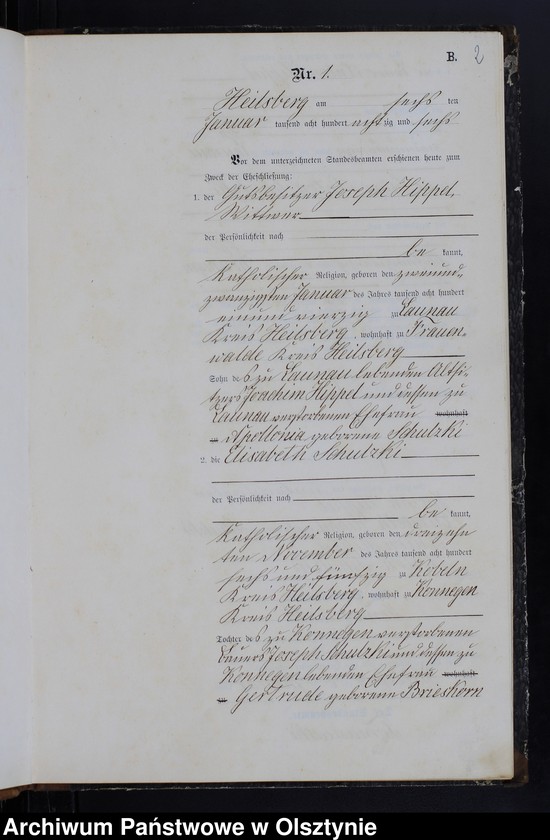 B.
2
Nr. 1.
Heilsberg am sechs ten
Januar tausend acht hundert achtzig und sechs
Vor dem unterzeichneten Standesbeamten erschienen heute zum
Zweck der Eheschließung:
1. der Gutsbesitzer Joseph Hippel,
Wittwer
der Persönlichkeit nach
be kannt,
Katholischer Religion, geboren den zweiund-
zwanzigsten Januar des Jahres tausend acht hundert
einund vierzig zu Launau
Kreis Heilsberg, wohnhaft zu Frauen-
walde Kreis Heilsberg
Sohn des zu Launau lebenden Altsi-
tzers Joachim Hippel und dessen zu
Launau verstorbenen Ehefrau wohnhaft
zu Apollonia geborene Schulzki
2. die Elisabeth Schulzki
der Persönlichkeit nach
be kannt,
Katholischer Religion, geboren den dreizehn
ten November des Jahres tausend acht hundert
sechs und fünfzig zu Kobeln
Kreis Heilsberg, wohnhaft zu Konnegen
Kreis Heilsberg
Tochter des zu Konnegen verstorbenen
Bauers Joseph Schulzki und dessen zu
Konnegen lebenden Ehefrau wohnhaft
zu Gertrude geborene Brieskorn
Archiwum Państwowe w Olsztynie